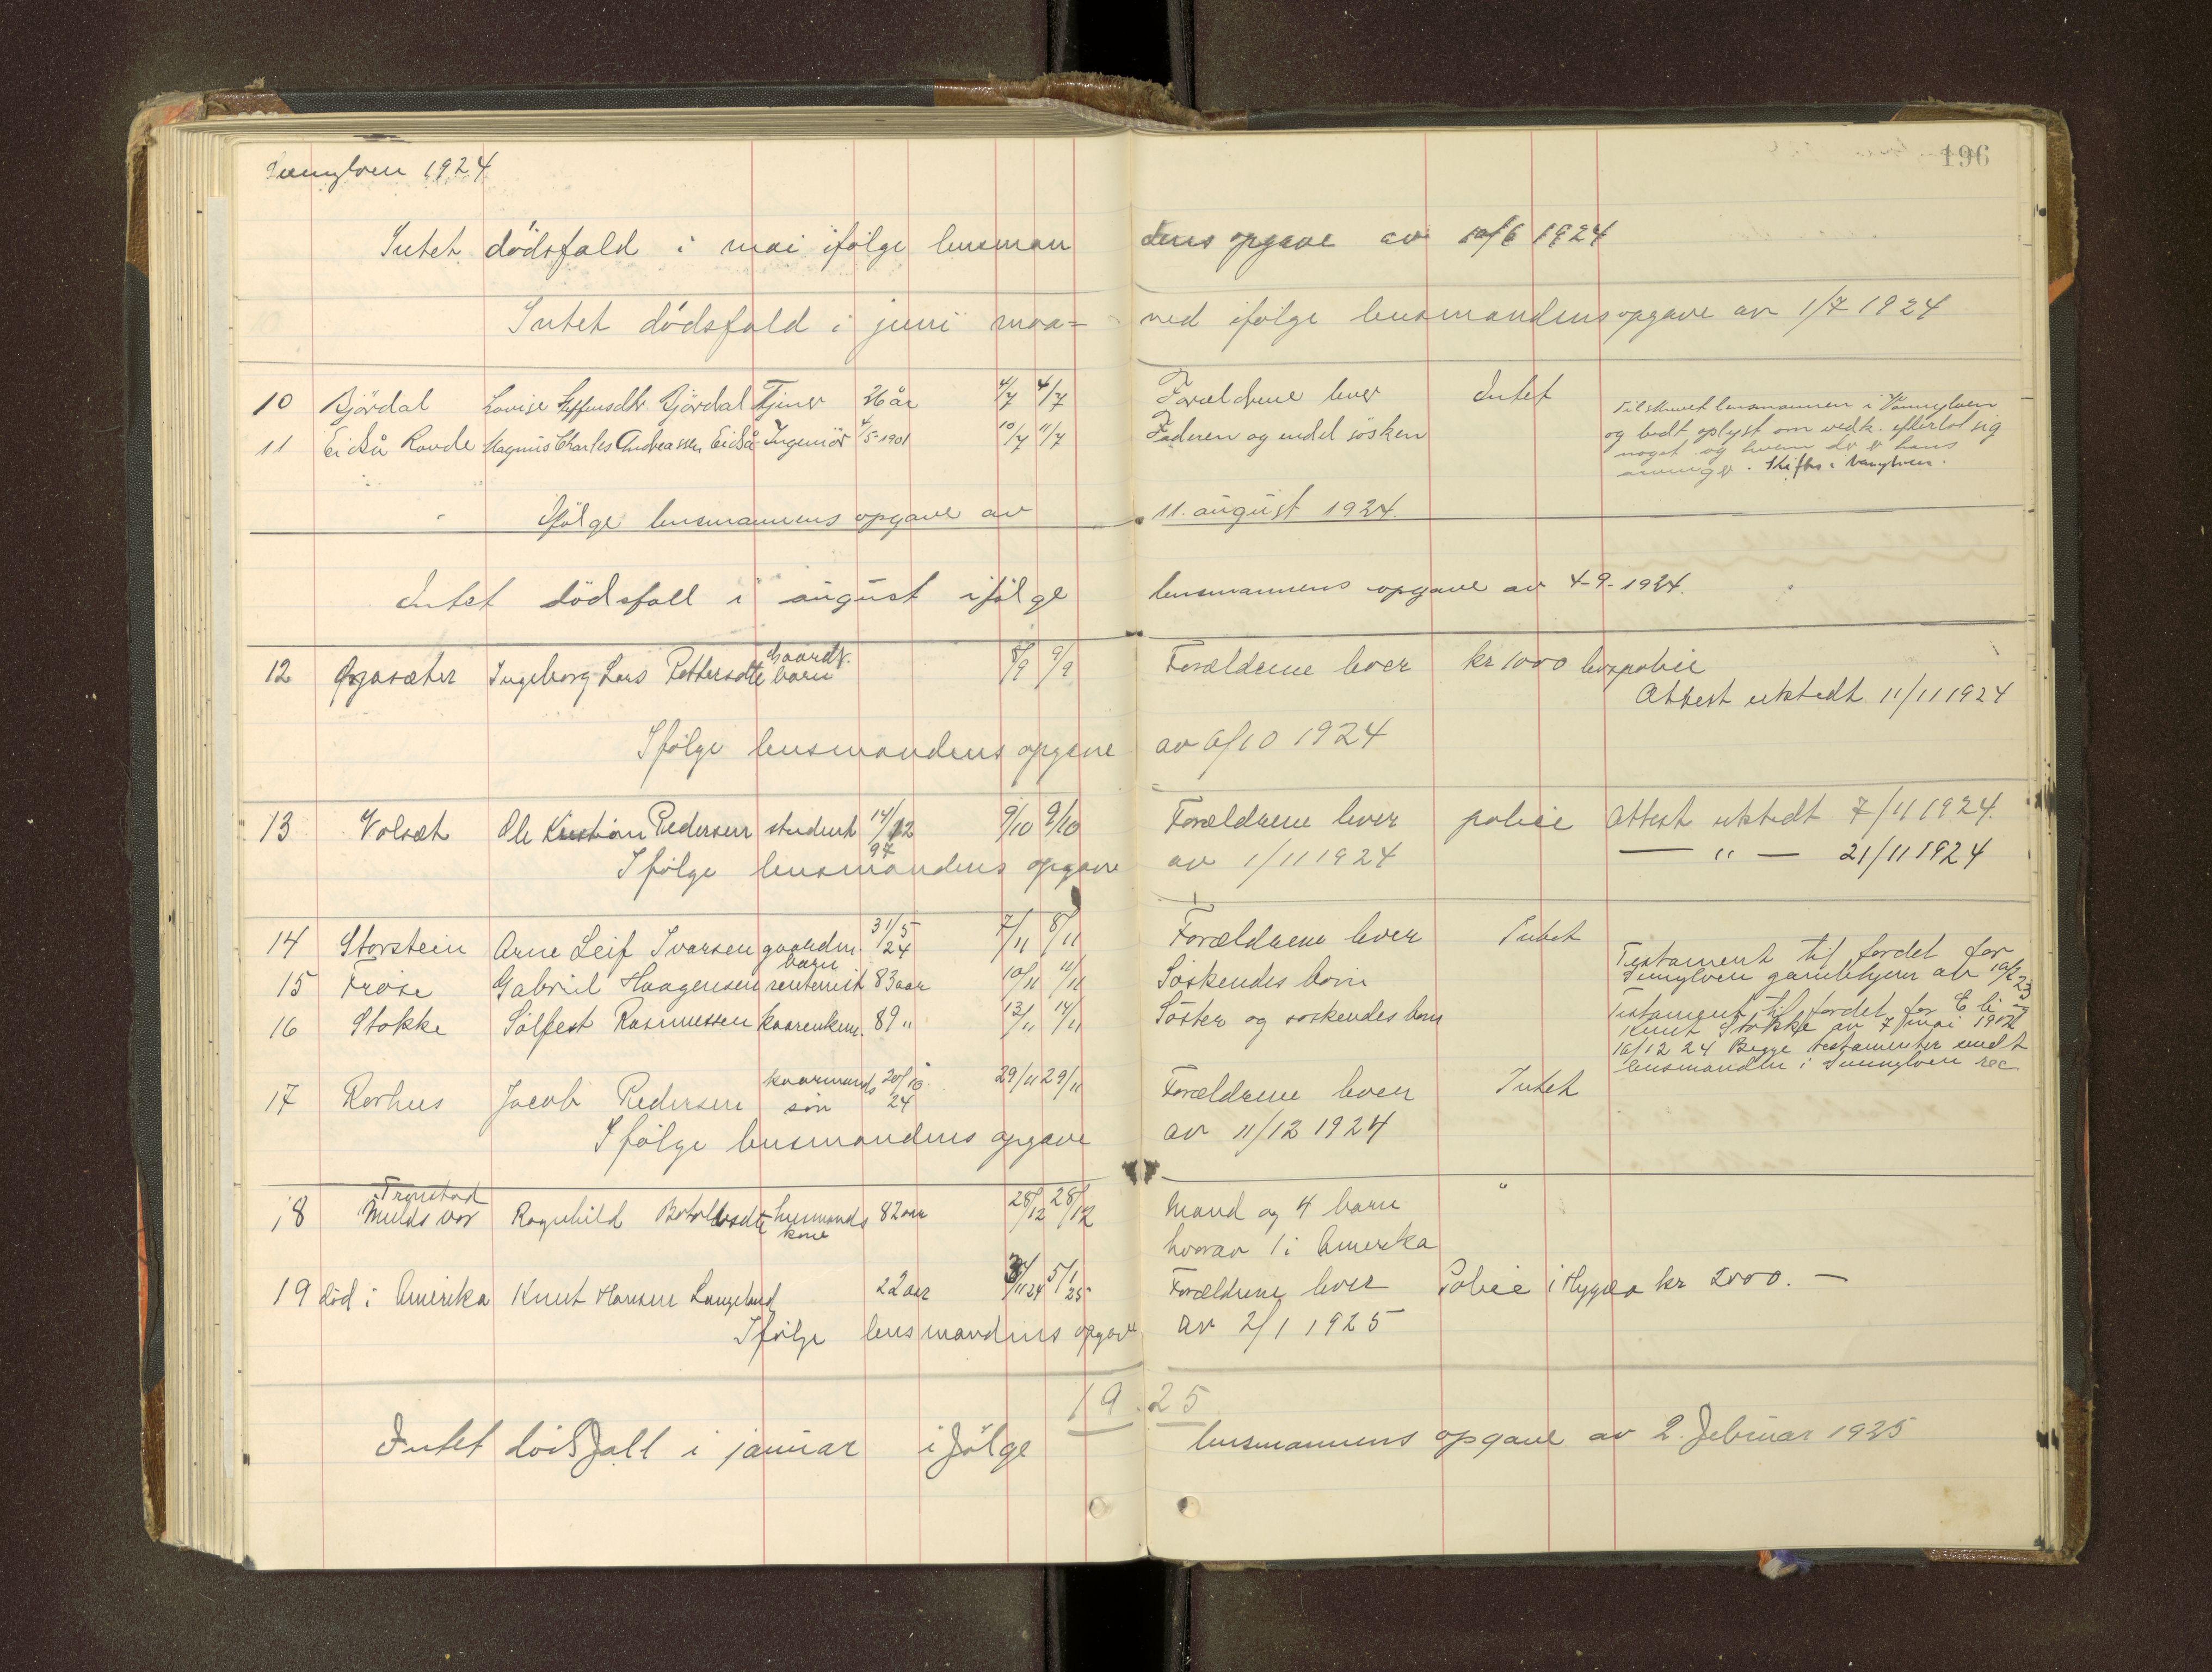 Sunnylven 1924
196
Intet dödsfald i mai ifölge lensmandens opgave av 10/6 1924
Intet dödsfald i juni maa= ned ifölge lensmandens opgave av 1/7 1924
10 Björdal Lovise Steffensdtr. Björdal Tjener 26 år 4/7 4/7 Forældrene lever Intet
11 Eidså Rovde Magnus Charles Andreassen Eidså Ingeniör 4/5-1901 10/7 11/7 Faderen og endel sösken
Tilskrevet lensmannen i Vannylven
og bedt oplyst om vedk. efterlot sig
noget og hvem der er hans
arvinger. Skiftes i Vanylven.
Ifölge lensmannens opgave av 11. august 1924.
Intet dödsfall i august ifölge lensmannens opgave av 4-9-1924.
12 Ingeborg Lars Pettersdtr gaardbr. barn 8/9 9/9 Forældrene lever kr 1000 livspolice
Attest utstedt 11/11 1924
Ifölge lensmandens opgave av 6/10 1924
13 Volsæt Ole Kristian Pedersen student 14/12 97 9/10 9/10 Forældrene lever police Attest utstedt 7/11 1924.
— " — 21/11 1924
Ifölge lensmandens opgave av 1/11 1924
14 Storstein Arne Leif Ivarsen gaardm. barn 31/5 24 7/11 8/11 Forældrene lever Intet
15 Frøise Gabriel Haagensen rentenist 83 aar 10/11 11/11 Söskendes born
Testament til fordel for
Sunnylven gamlehjem av 10/2 23
16 Stokke Sölfest Rasmussen kaarenkem. 89 " 13/11 14/11 Söster og soskendes born
Testament til fordel for E li og
Knut Stokke av 7 mai 19
10/12 24 Begge testamenter sendt
lensmanden i Sunnylven rec
17 Rorhus Jacob Pedersen kaarmands sön 20/10 24 29/11 29/11 Forældrene lever Intet
Ifölge lensmandens opgave av 11/12 1924
18 Tronstad Muldsvor Ragnhild Botolvsdtr husmands kone 82 aar 28/12 28/12 Mand og 4 barn "
hvorav 1 i Amerika
19 död i Amerika Knut Hansen Langeland 22 aar /11 24 5/1 25 Forældrene lever Police i Hygea kr 2000. —
Ifölge lensmandens opgave av 2/1 1925
1925
Intet dödsfall i januar ifölge lensmannens opgave av 2. februar 1925